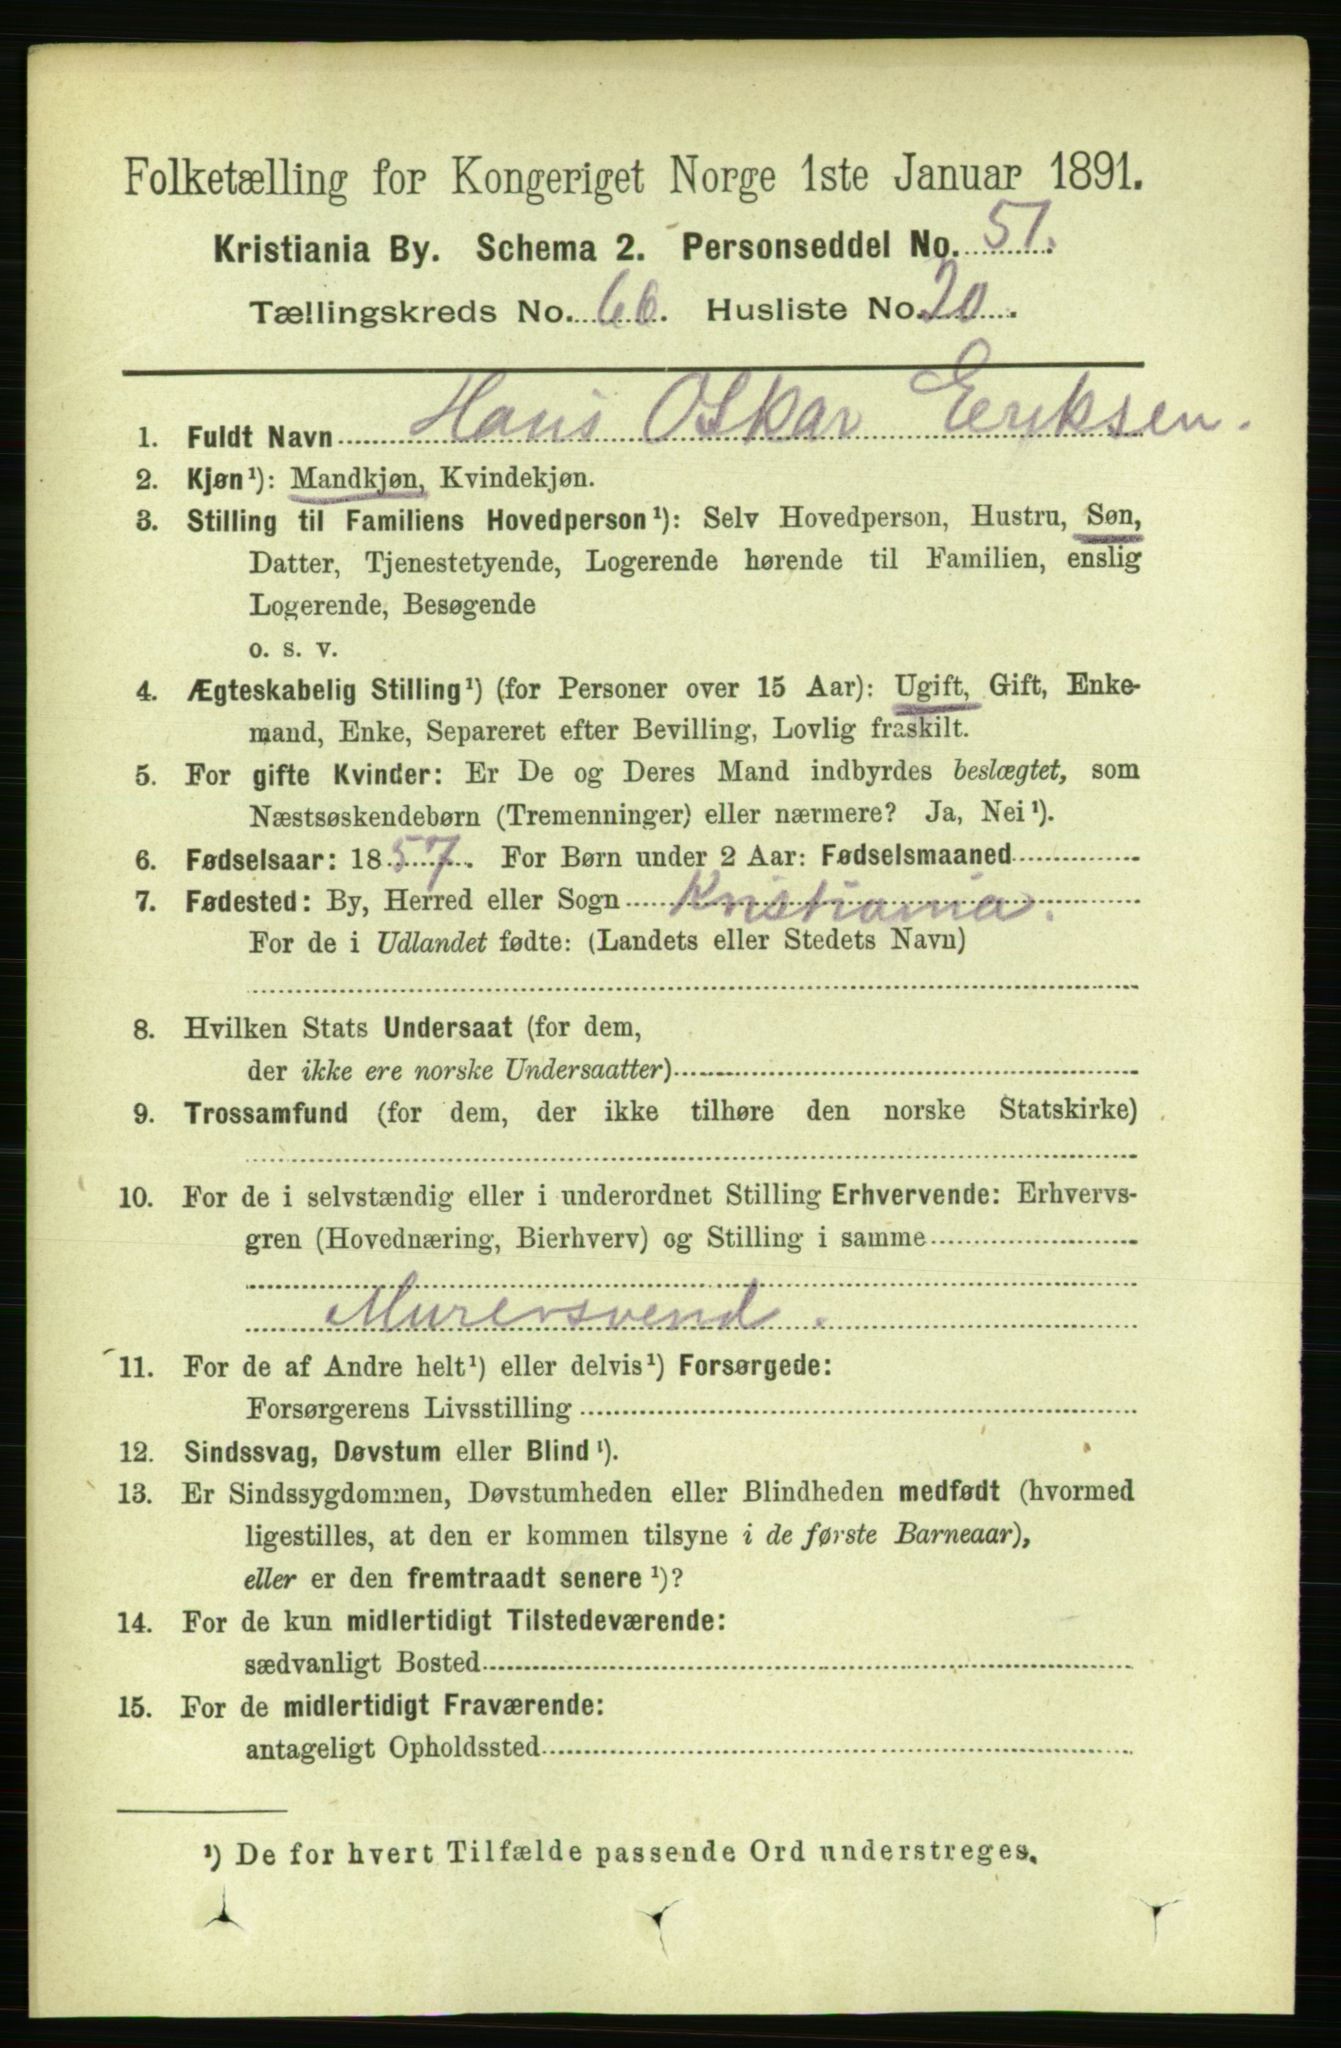 Folketælling for Kongeriget Norge 1ste Januar 1891.
Kristiania By. Schema 2. Personseddel No. 51.
Tællingskreds No. 66. Husliste No. 20.
1. Fuldt Navn Hans Oskar Eriksen.
2. Kjøn¹): Mandkjøn, Kvindekjøn.
3. Stilling til Familiens Hovedperson¹): Selv Hovedperson, Hustru, Søn,
Datter, Tjenestetyende, Logerende hørende til Familien, enslig
Logerende, Besøgende
o. s. v.
4. Ægteskabelig Stilling¹) (for Personer over 15 Aar): Ugift, Gift, Enke-
mand, Enke, Separeret efter Bevilling, Lovlig fraskilt.
5. For gifte Kvinder: Er De og Deres Mand indbyrdes beslægtet, som
Næstsøskendebørn (Tremenninger) eller nærmere? Ja, Nei¹).
6. Fødselsaar: 1857. For Børn under 2 Aar: Fødselsmaaned
7. Fødested: By, Herred eller Sogn Kristiania.
For de i Udlandet fødte: (Landets eller Stedets Navn)
8. Hvilken Stats Undersaat (for dem,
der ikke ere norske Undersaatter)
9. Trossamfund (for dem, der ikke tilhøre den norske Statskirke)
10. For de i selvstændig eller i underordnet Stilling Erhvervende: Erhvervs-
gren (Hovednæring, Bierhverv) og Stilling i samme
Murersvend.
11. For de af Andre helt¹) eller delvis¹) Forsørgede:
Forsørgerens Livsstilling
12. Sindssvag, Døvstum eller Blind¹).
13. Er Sindssygdommen, Døvstumheden eller Blindheden medfødt (hvormed
ligestilles, at den er kommen tilsyne i de første Barneaar),
eller er den fremtraadt senere¹)?
14. For de kun midlertidigt Tilstedeværende:
sædvanligt Bosted
15. For de midlertidigt Fraværende:
antageligt Opholdssted
¹) De for hvert Tilfælde passende Ord understreges.